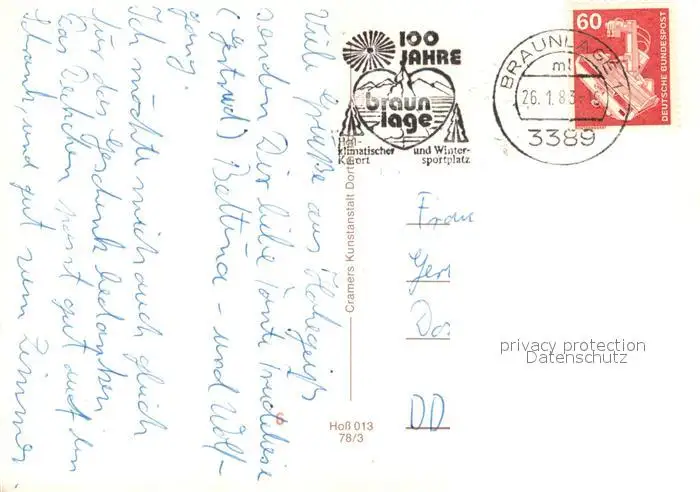 Viele Grüße aus Hohegeiß
senden Dir liebe Tante
Bettina - und Wolf-
gang.
Ich möchte mich auch gleich
für das Geschenk bedanken
Das Deckchen passt gut auf den
Schrank und gut zum Zimmer
100
JAHRE
braun
lage
Heil-
klimatischer
Kurort
und Winter-
sportplatz
BRAUNLAGE 1
ml
26.1.83
3389
60
DEUTSCHE BUNDESPOST
Cramers Kunstanstalt Dort
Hoß 013
78/3
Frau
Ger
Do
DD
privacy protection
Datenschutz